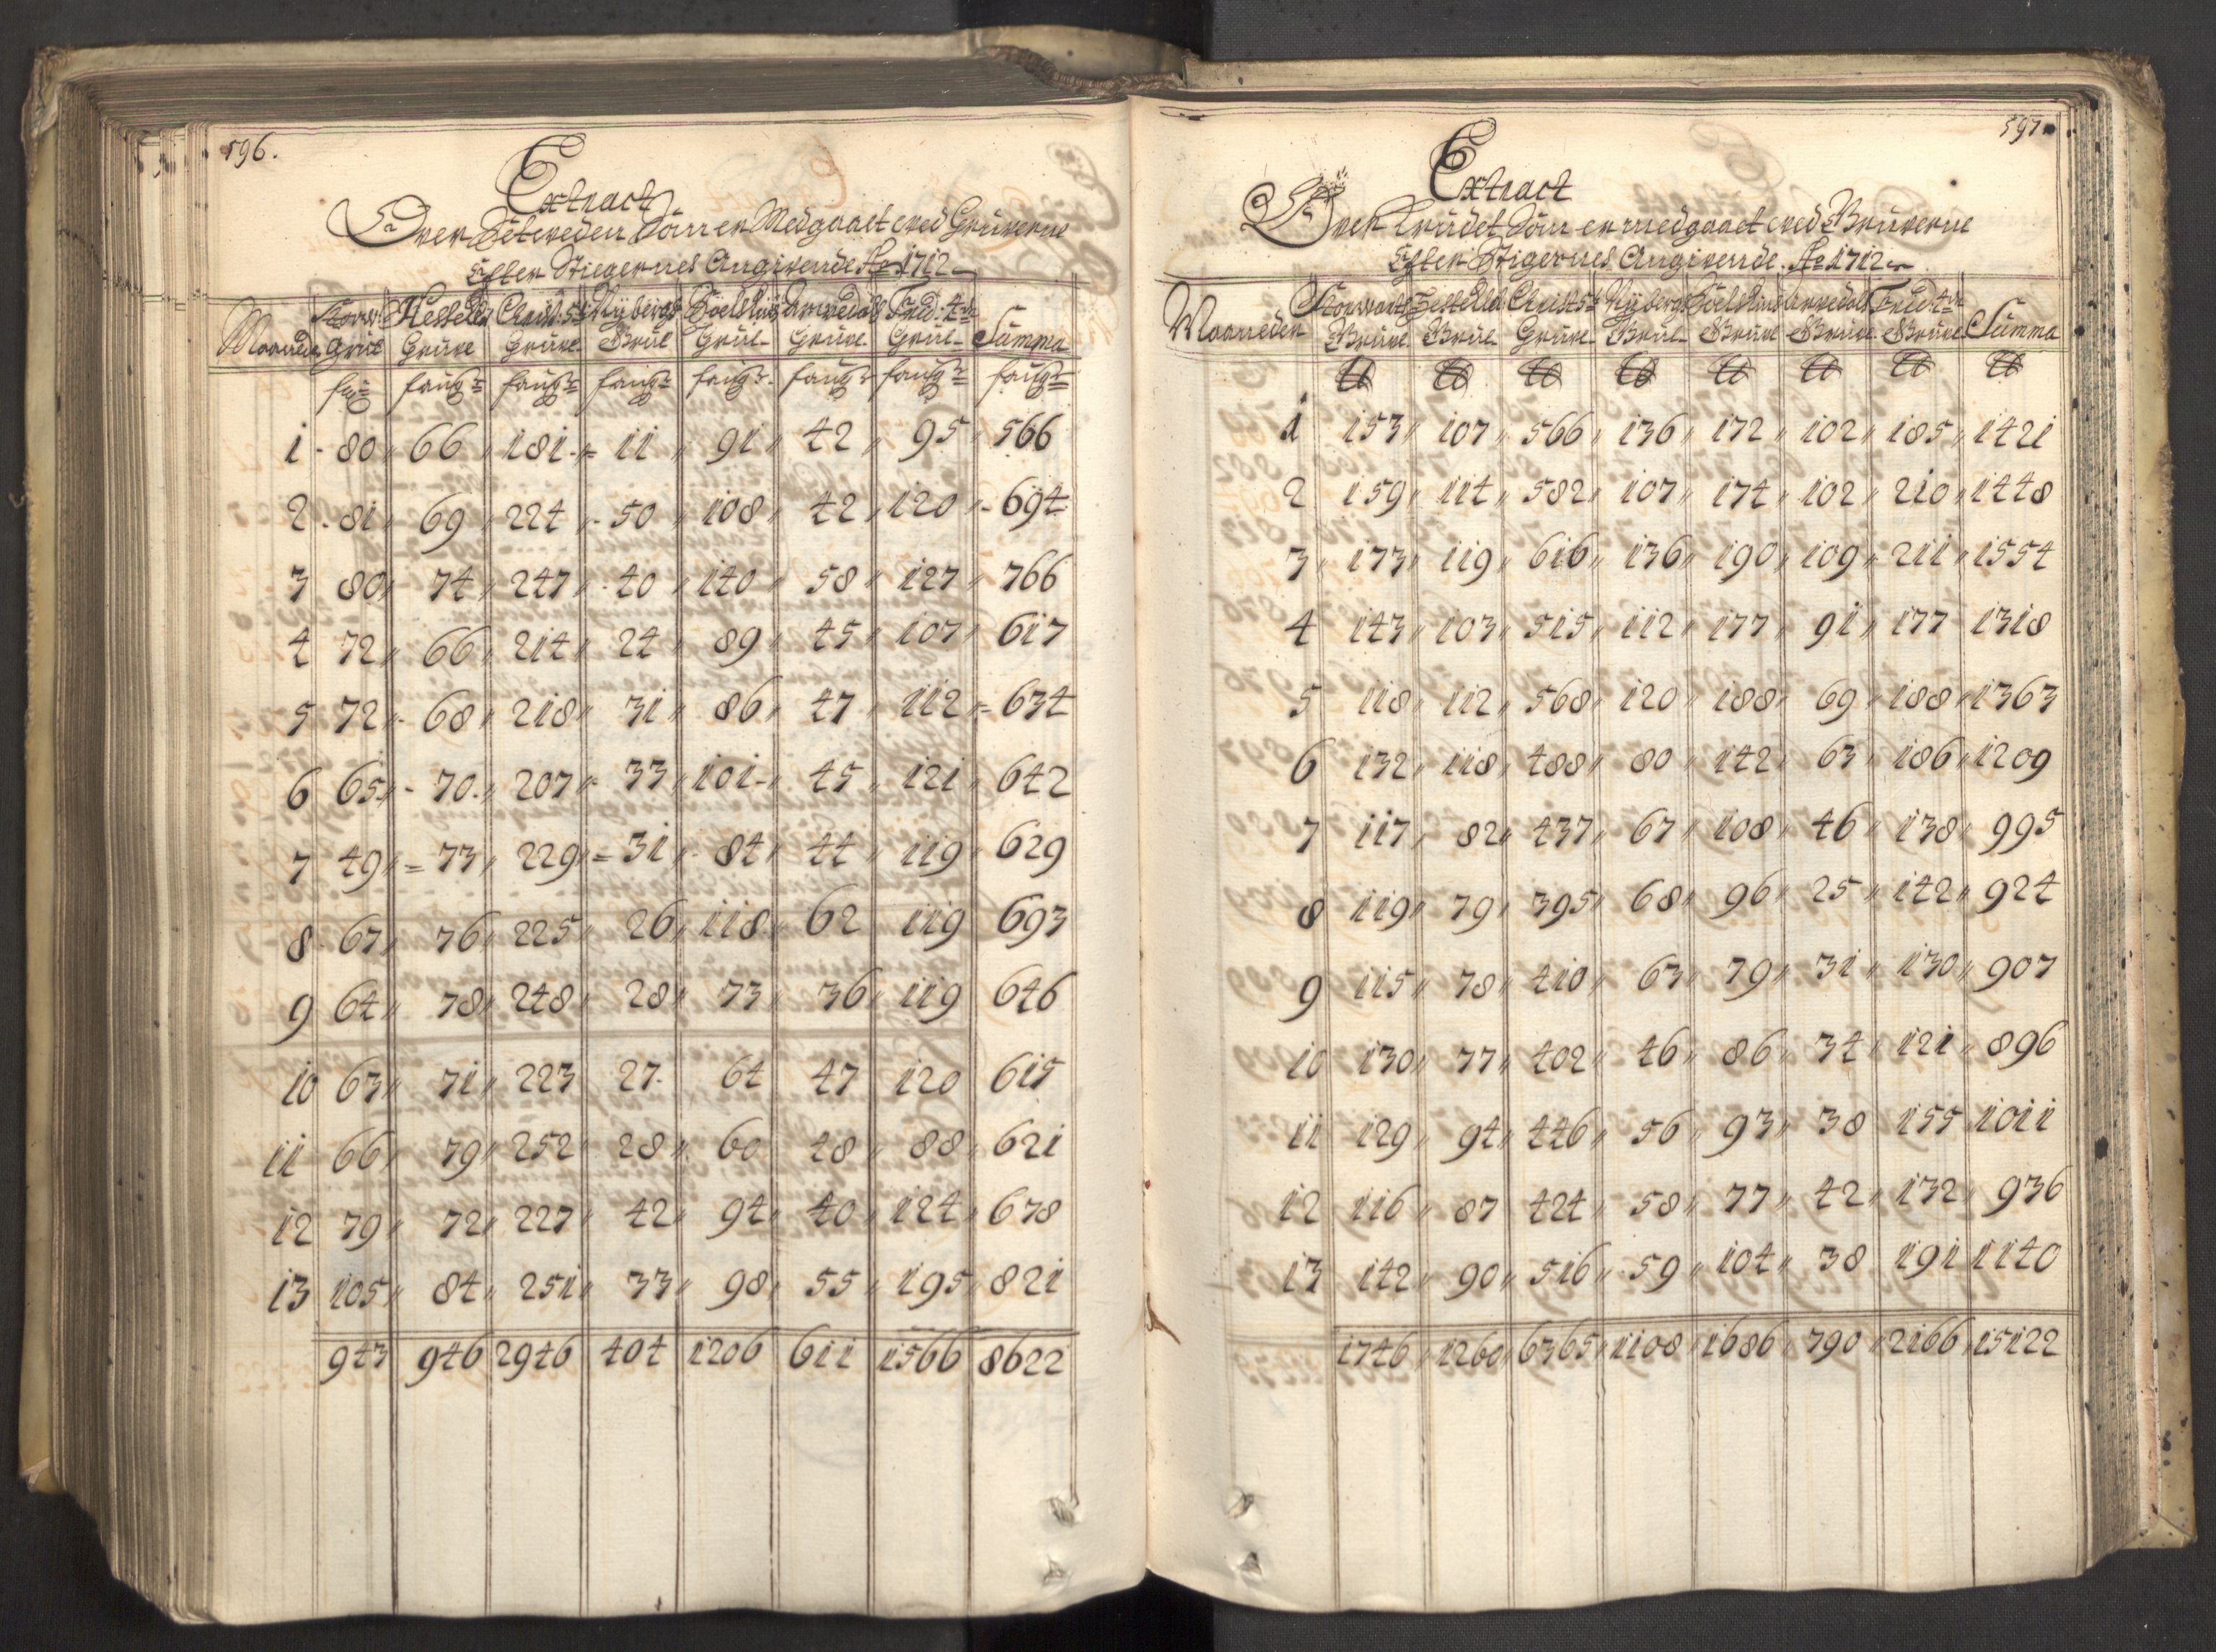 596.
Extract
Over Sætteveden Som er Medgaaet ved Gruverne
Efter Stiegernes Angivende Ao 1712
Maaneder Storw. Grue Hestekl. Gruve Christ: 5ti Gruve Nybergs Grue Grue Arvedals Gruve Fred: 4ti Grue Summa
faug: faug: faug: faug: faug: faug: faug:
1 80 66 181 11 91 42 95 566
2 81 69 224 50 108 42 120 694
3 80 74 247 40 140 58 127 766
4 72 66 214 24 89 45 107 617
5 72 68 218 31 86 47 112 634
6 65 70 207 33 101 45 121 642
7 49 73 229 31 84 44 119 629
8 67 76 225 26 118 62 119 693
9 64 78 248 28 73 36 119 646
10 63 71 223 27 64 47 120 615
11 66 79 252 28 60 48 88 621
12 79 72 227 42 94 40 124 678
13 105 84 251 33 98 55 195 821
943 946 2946 404 1206 611 1566 8622
597
Extract
Over Krudet Som er medgaaet ved Gruverne
Efter Stigernes Angivende Ao 1712
Maaneder Storwarts Gruve Grue Christ: 5ti Gruve Nybergs Grue Gruve Arvedals Gruve Fred: 4ti Gruve Summa
℔ ℔ ℔ ℔ ℔ ℔ ℔ ℔
1 153 107 566 136 172 102 185 1421
2 159 114 582 107 174 102 210 1448
3 173 119 616 136 190 109 211 1554
4 143 103 515 112 177 91 177 1318
5 118 112 568 120 188 69 188 1363
6 132 118 488 80 142 63 186 1209
7 117 82 437 67 108 46 138 995
8 119 79 395 68 96 25 142 924
9 115 78 410 63 79 31 130 907
10 130 77 402 46 86 34 121 896
11 129 94 446 56 93 38 155 1011
12 116 87 424 58 77 42 132 936
13 142 90 516 59 104 38 191 1140
1746 1260 6365 1108 1686 790 2166 15122